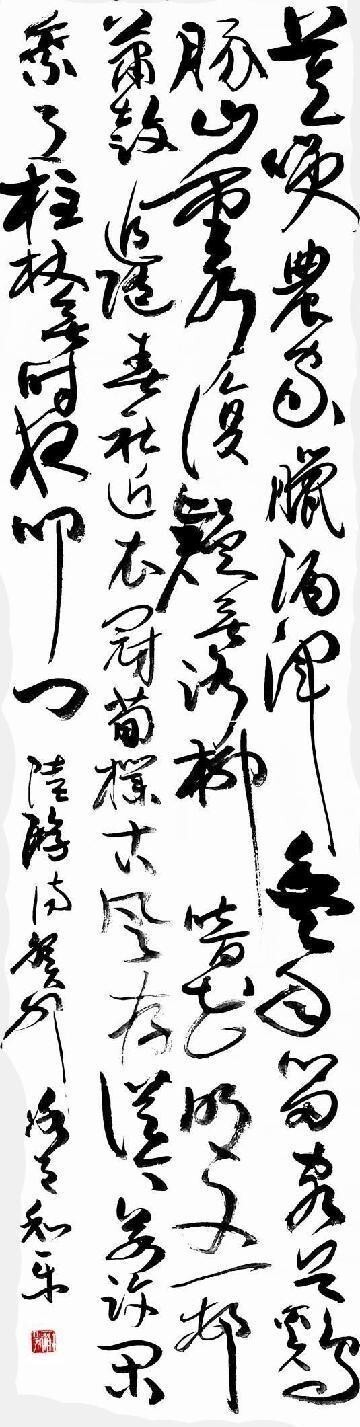 莫笑農家臘酒渾豐年留客足鷄
豚山重水復疑無路柳暗花明又一村
簫鼓追隨春社近衣冠簡樸古風存從今若許閑
乘月柱杖無時夜叩门陸游詩癸卯